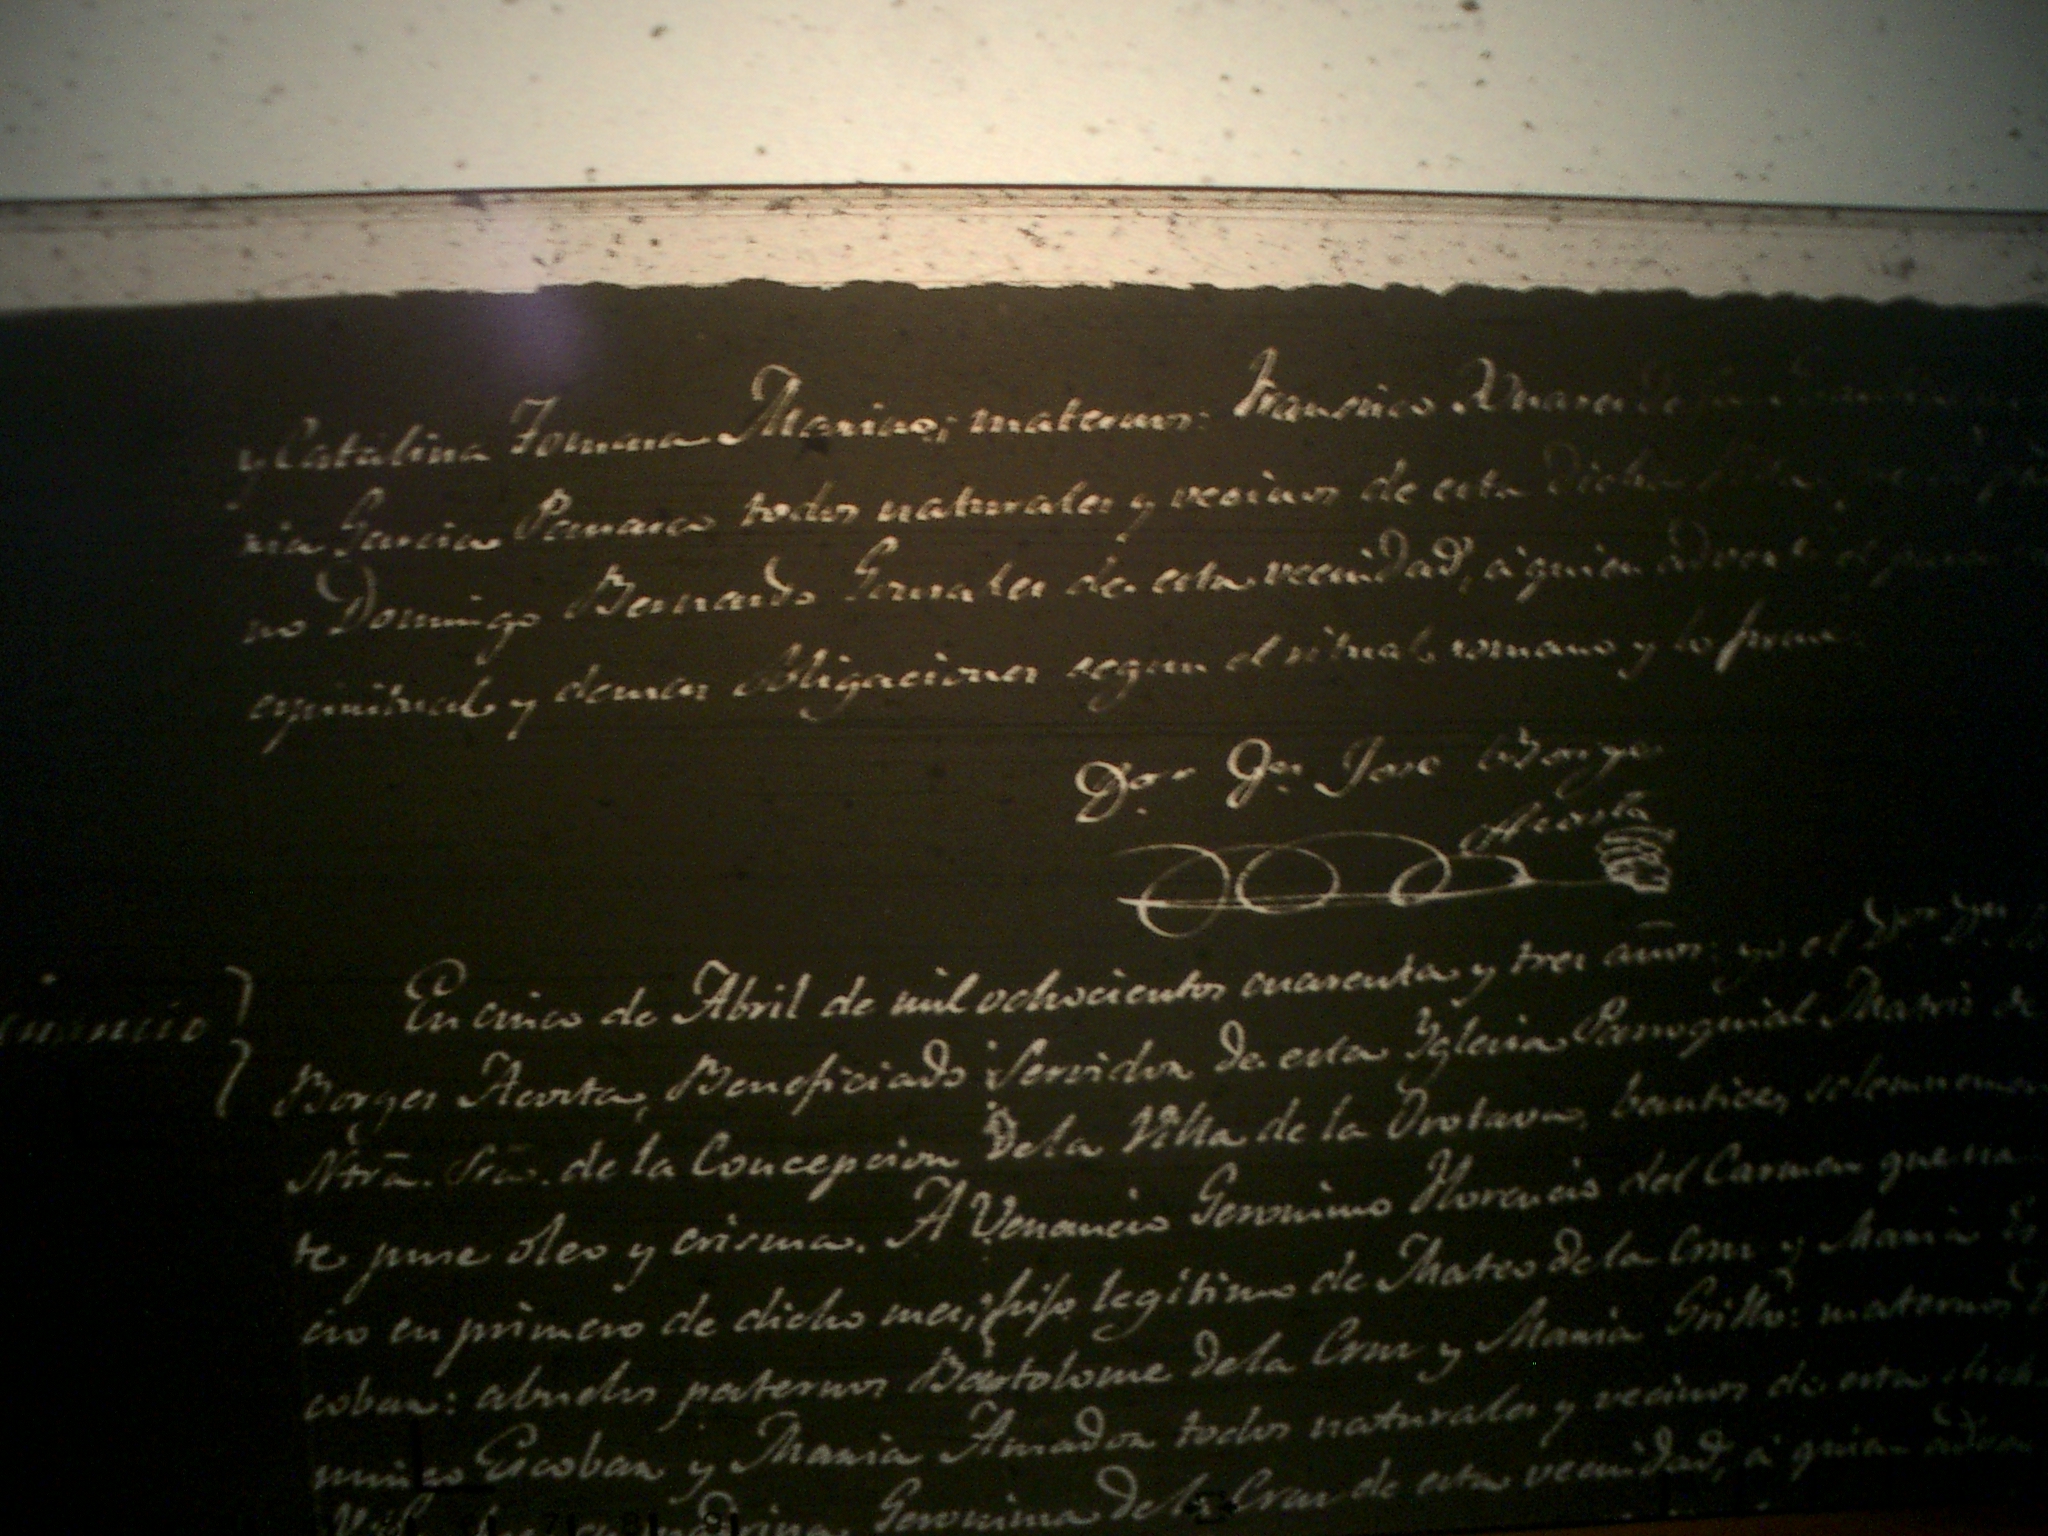 y Catalina Tomasa Marino; maternos: Francisco Xuares
ria Garcia Pamasco todos naturales y vecinos de esta dicha Villa,
no Domingo Bernardo Gonsales de esta vecindad, á quien adverti el paren
espiritual y demas obligaciones segun el ritual romano y lo firme
Dor. Dn. Jose Borges
Acosta
En cinco de Abril de mil ochocientos cuarenta y tres años: yo el Dor. Dn.
Borges Acosta, Beneficiado Servidor de esta Yglesia Parroquial Matris de
Ntra. Sra. de la Concepcion de la Villa de la Orotava, bautice, solemnemen
te puse oleo y crisma. A Venancio Geronimo Florencio del Carmen que na
cio en primero de dicho mes, hijo legitimo de Mateo de la Crus y Maria Es
coban: abuelos paternos Bartolome de la Crus y Maria Grillo: maternos
mingo Escoban y Maria Amador todos naturales y vecinos de esta dicha
madrina Geronima de la Crus de esta vecindad, á quien adver